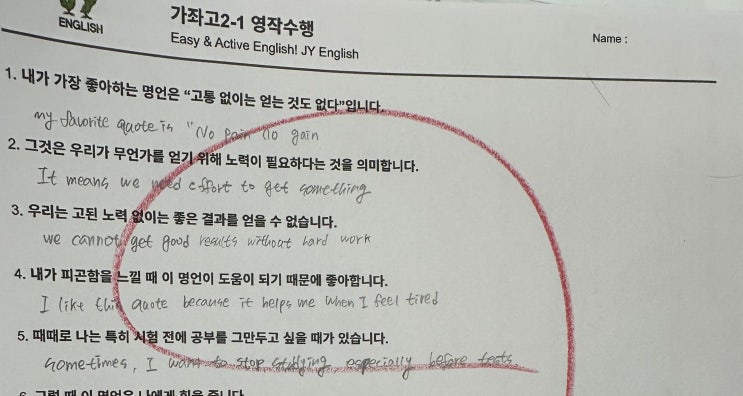 ENGLISH
가좌고2-1 영작수행
Easy & Active English! JY English
Name :
1. 내가 가장 좋아하는 명언은 “고통 없이는 얻는 것도 없다”입니다.
my favorite quote is "No pain no gain
2. 그것은 우리가 무언가를 얻기 위해 노력이 필요하다는 것을 의미합니다.
It means we need effort to get something
3. 우리는 고된 노력 없이는 좋은 결과를 얻을 수 없습니다.
we cannot get good results without hard work
4. 내가 피곤함을 느낄 때 이 명언이 도움이 되기 때문에 좋아합니다.
I like this quote because it helps me when I feel tired
5. 때때로 나는 특히 시험 전에 공부를 그만두고 싶을 때가 있습니다.
sometimes, I want to stop studying, especially before tests.
6. 그럴 때 이 명언은 나에게 힘을 줍니다